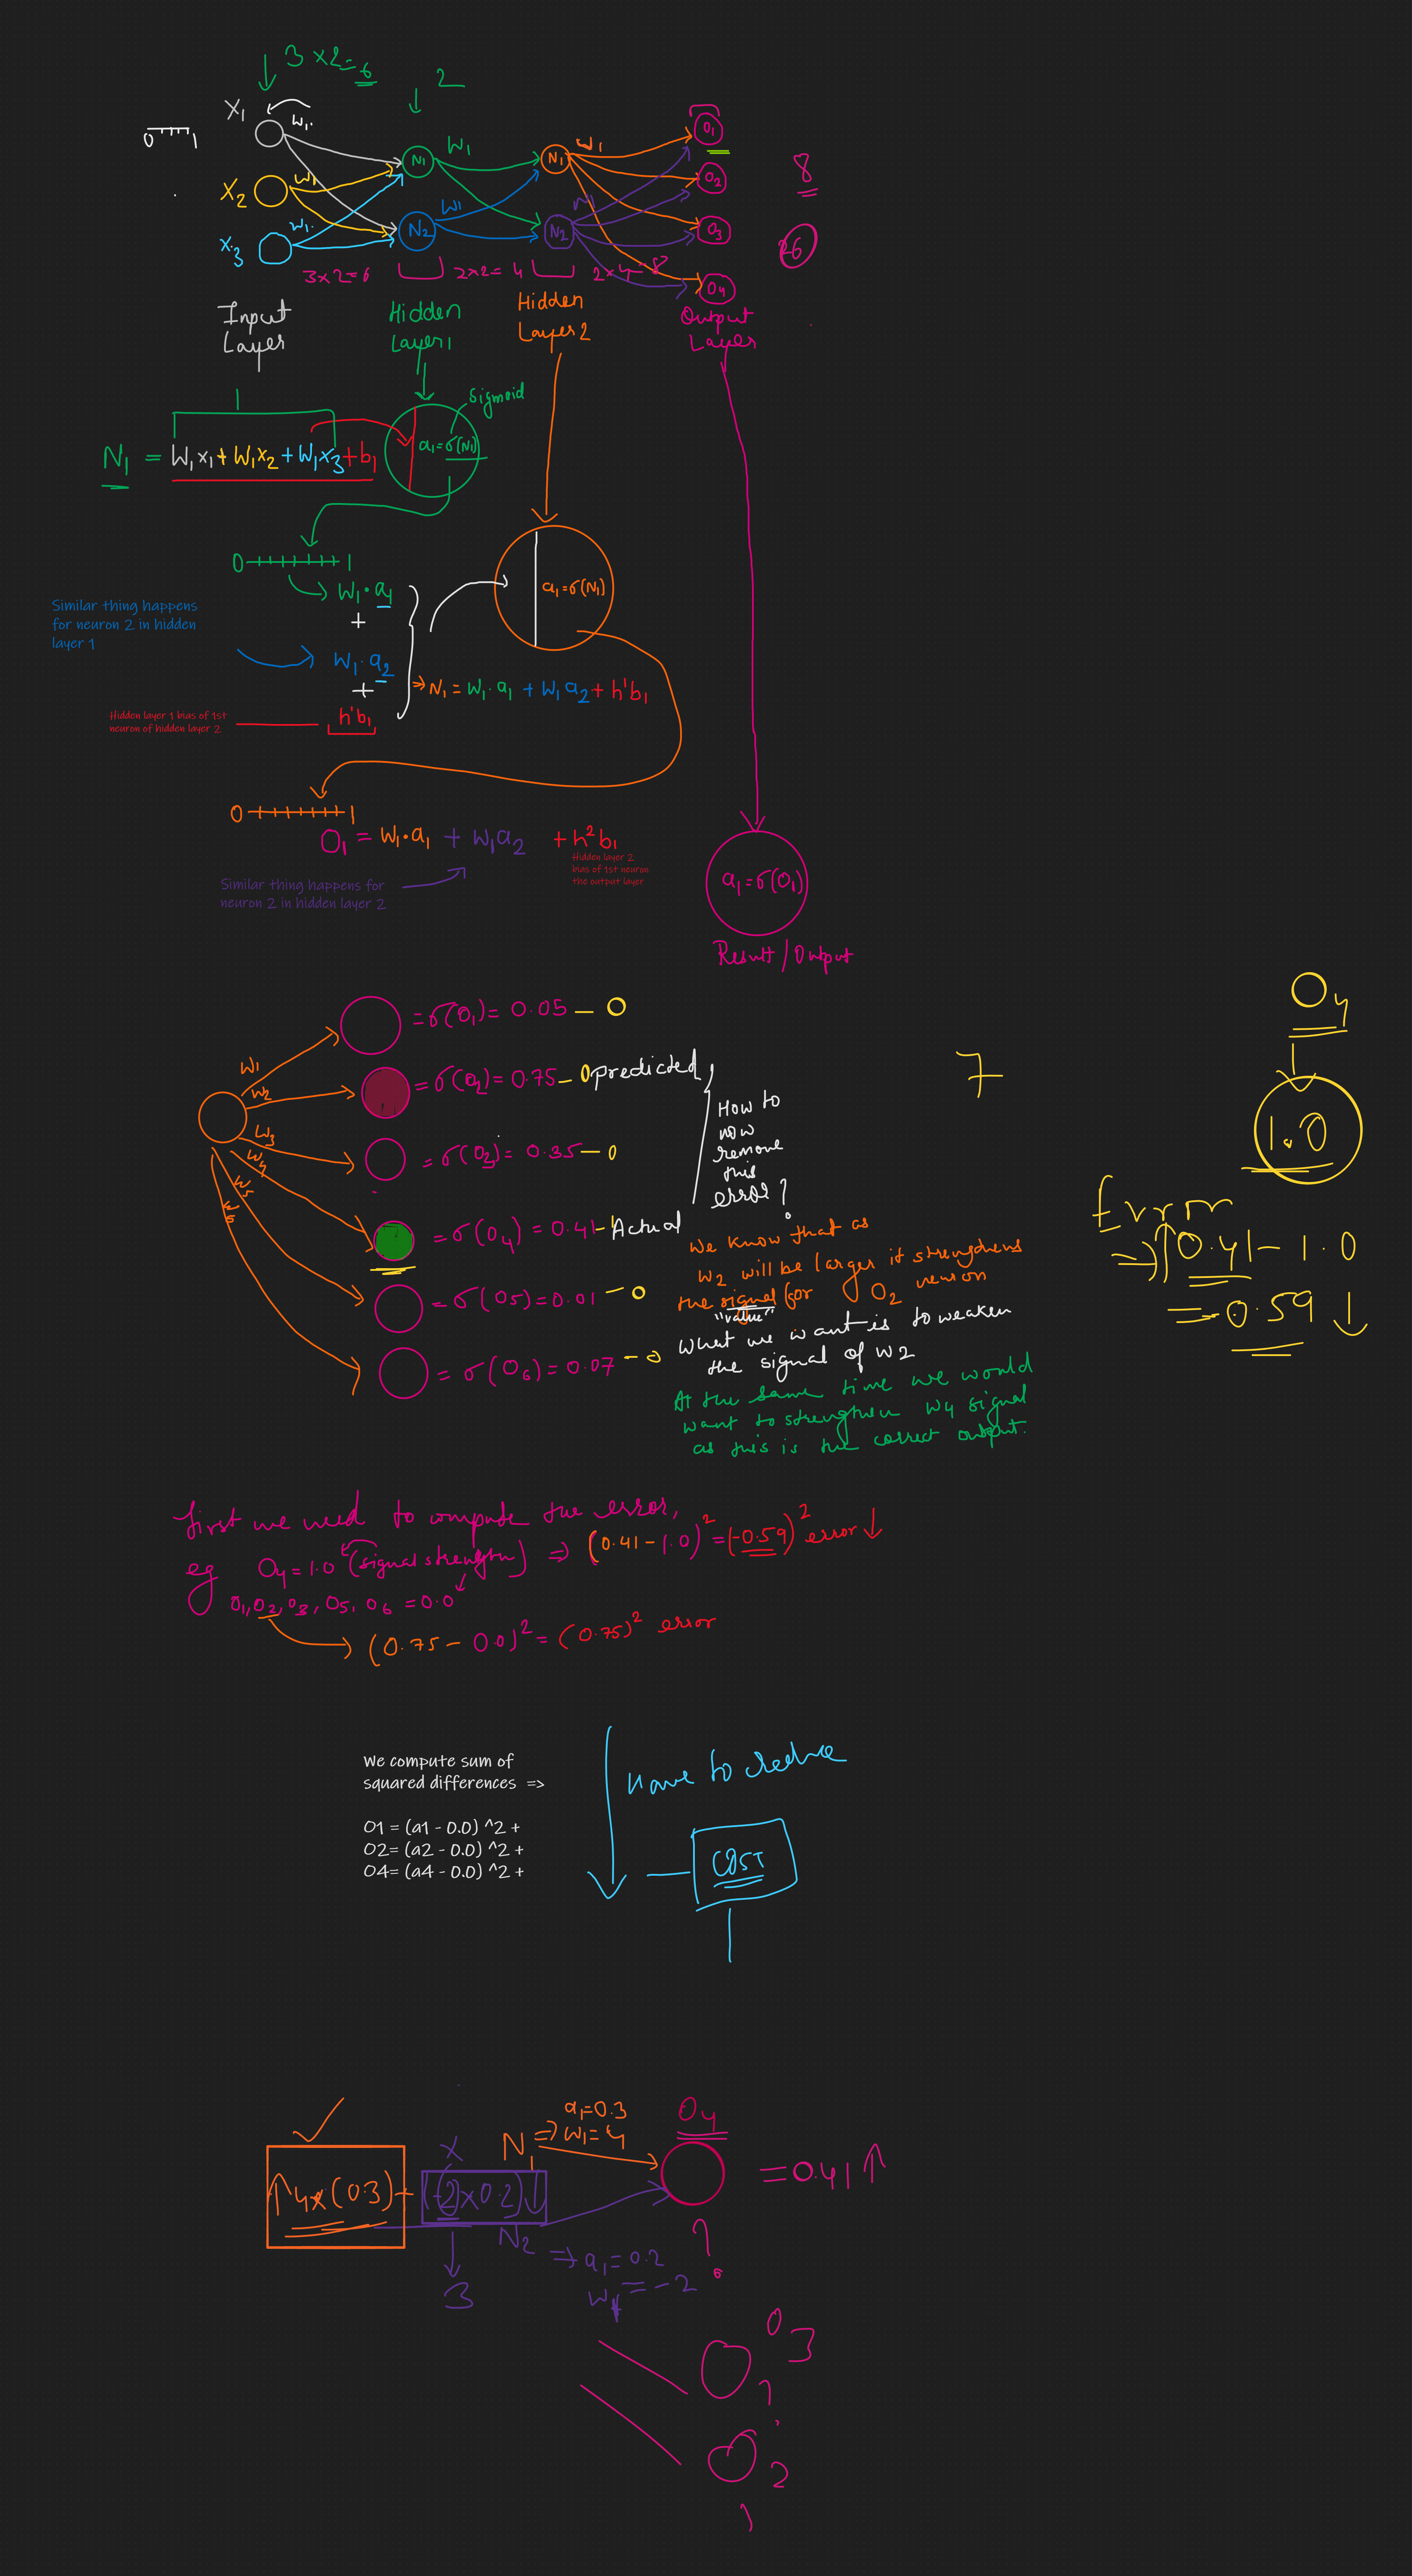 3 x2=6
2
X₁
W₁.
0 1
N₁
W₁
N₁
W₁
O₁
X₂
W₁
O₂
8
X₃
W₁.
N₂
W₁
N₂
O₃
26
3x2=6
2x2=4
2x4=8
O₄
Input
Layer
Hidden
Layer1
Hidden
Layer2
Output
Layer
Sigmoid
N₁ = W₁x₁+W₁x₂+W₁x₃+b₁
a₁=σ(N₁)
0 1
W₁·a₁
+
a₁=σ(N₁)
Similar thing happens
for neuron 2 in hidden
layer 1
W₁·a₂
+
⇒N₁=W₁·a₁ + W₁a₂+ h'b₁
Hidden layer 1 bias of 1st
neuron of hidden layer 2
h'b₁
0 1
O₁ = W₁·a₁ + W₁a₂ + h²b₁
Hidden layer 2
bias of 1st neuron
the output layer
Similar thing happens for
neuron 2 in hidden layer 2
a₁=σ(O₁)
Result/Output
=σ(O₁)= 0.05 – 0
W₁
W₂
W₃
W₄
W₅
=σ(O₂)=0.75 – 0 predicted
= σ(O₃)= 0.35 – 0
= σ(O₄) = 0.41 – 1 Actual
= σ(O5)=0.01 – 0
= σ(O₆)=0.07 – 0
How to
now
remove
this
error?
7
O₄
1.0
Error
⇒ 0.41 – 1.0
= -0.59 ↓
We know that as
W2 will be larger it strengthens
the signal for O2 neuron
"value"
What we want is to weaken
the signal of W2
At the same time we would
want to strengthen W4 signal
as this is the correct output.
first we need to compute the error,
eg O₄=1.0 (signal strength) ⇒ (0.41-1.0)²=(-0.59)² error ↓
O₁,O₂,O₃,O5,O6 =0.0
(0.75 – 0.0)² = (0.75)² error
We compute sum of
squared differences =>
O1 = (a1 - 0.0) ^2 +
O2= (a2 - 0.0) ^2 +
O4= (a4 - 0.0) ^2 +
Have to reduce
COST
a₁=0.3
N₁ ⇒ W₁=4
O₄
X
↑4x(0.3)+
(-2)x0.2)↓
=0.41↑
N₂ ⇒ a₁=0.2
= -2
3
?
O 3
?
2